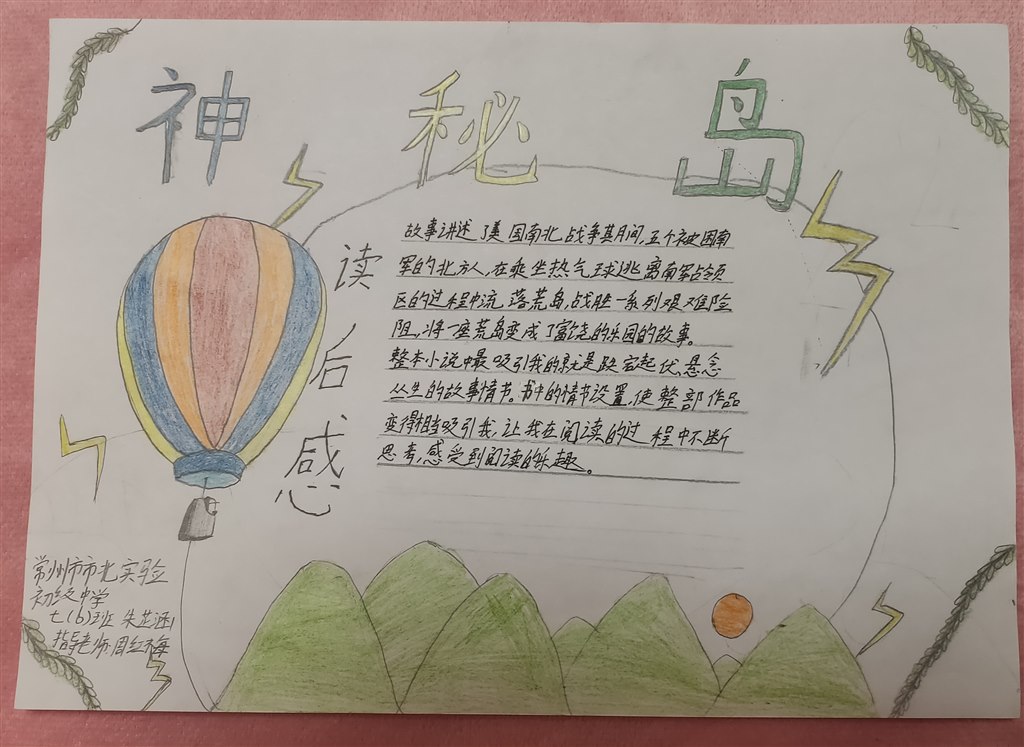 神秘岛
读后感
故事讲述了美国南北战争其月间,五个被困南
军的北方人,在乘坐热气球逃离南军占领
区的过程中流落荒岛,战胜一系列艰难险
阻,将一座荒岛变成了富饶的乐园的故事。
整本小说中最吸引我的就是跌宕起伏、悬念
丛生的故事情节。书中的情节设置,使整部作品
变得相当吸引我,让我在阅读的过程中不断
思考,感受到阅读的乐趣。
常州市市北实验
初级中学
七(6)班 朱芷涵
指导老师:周红梅